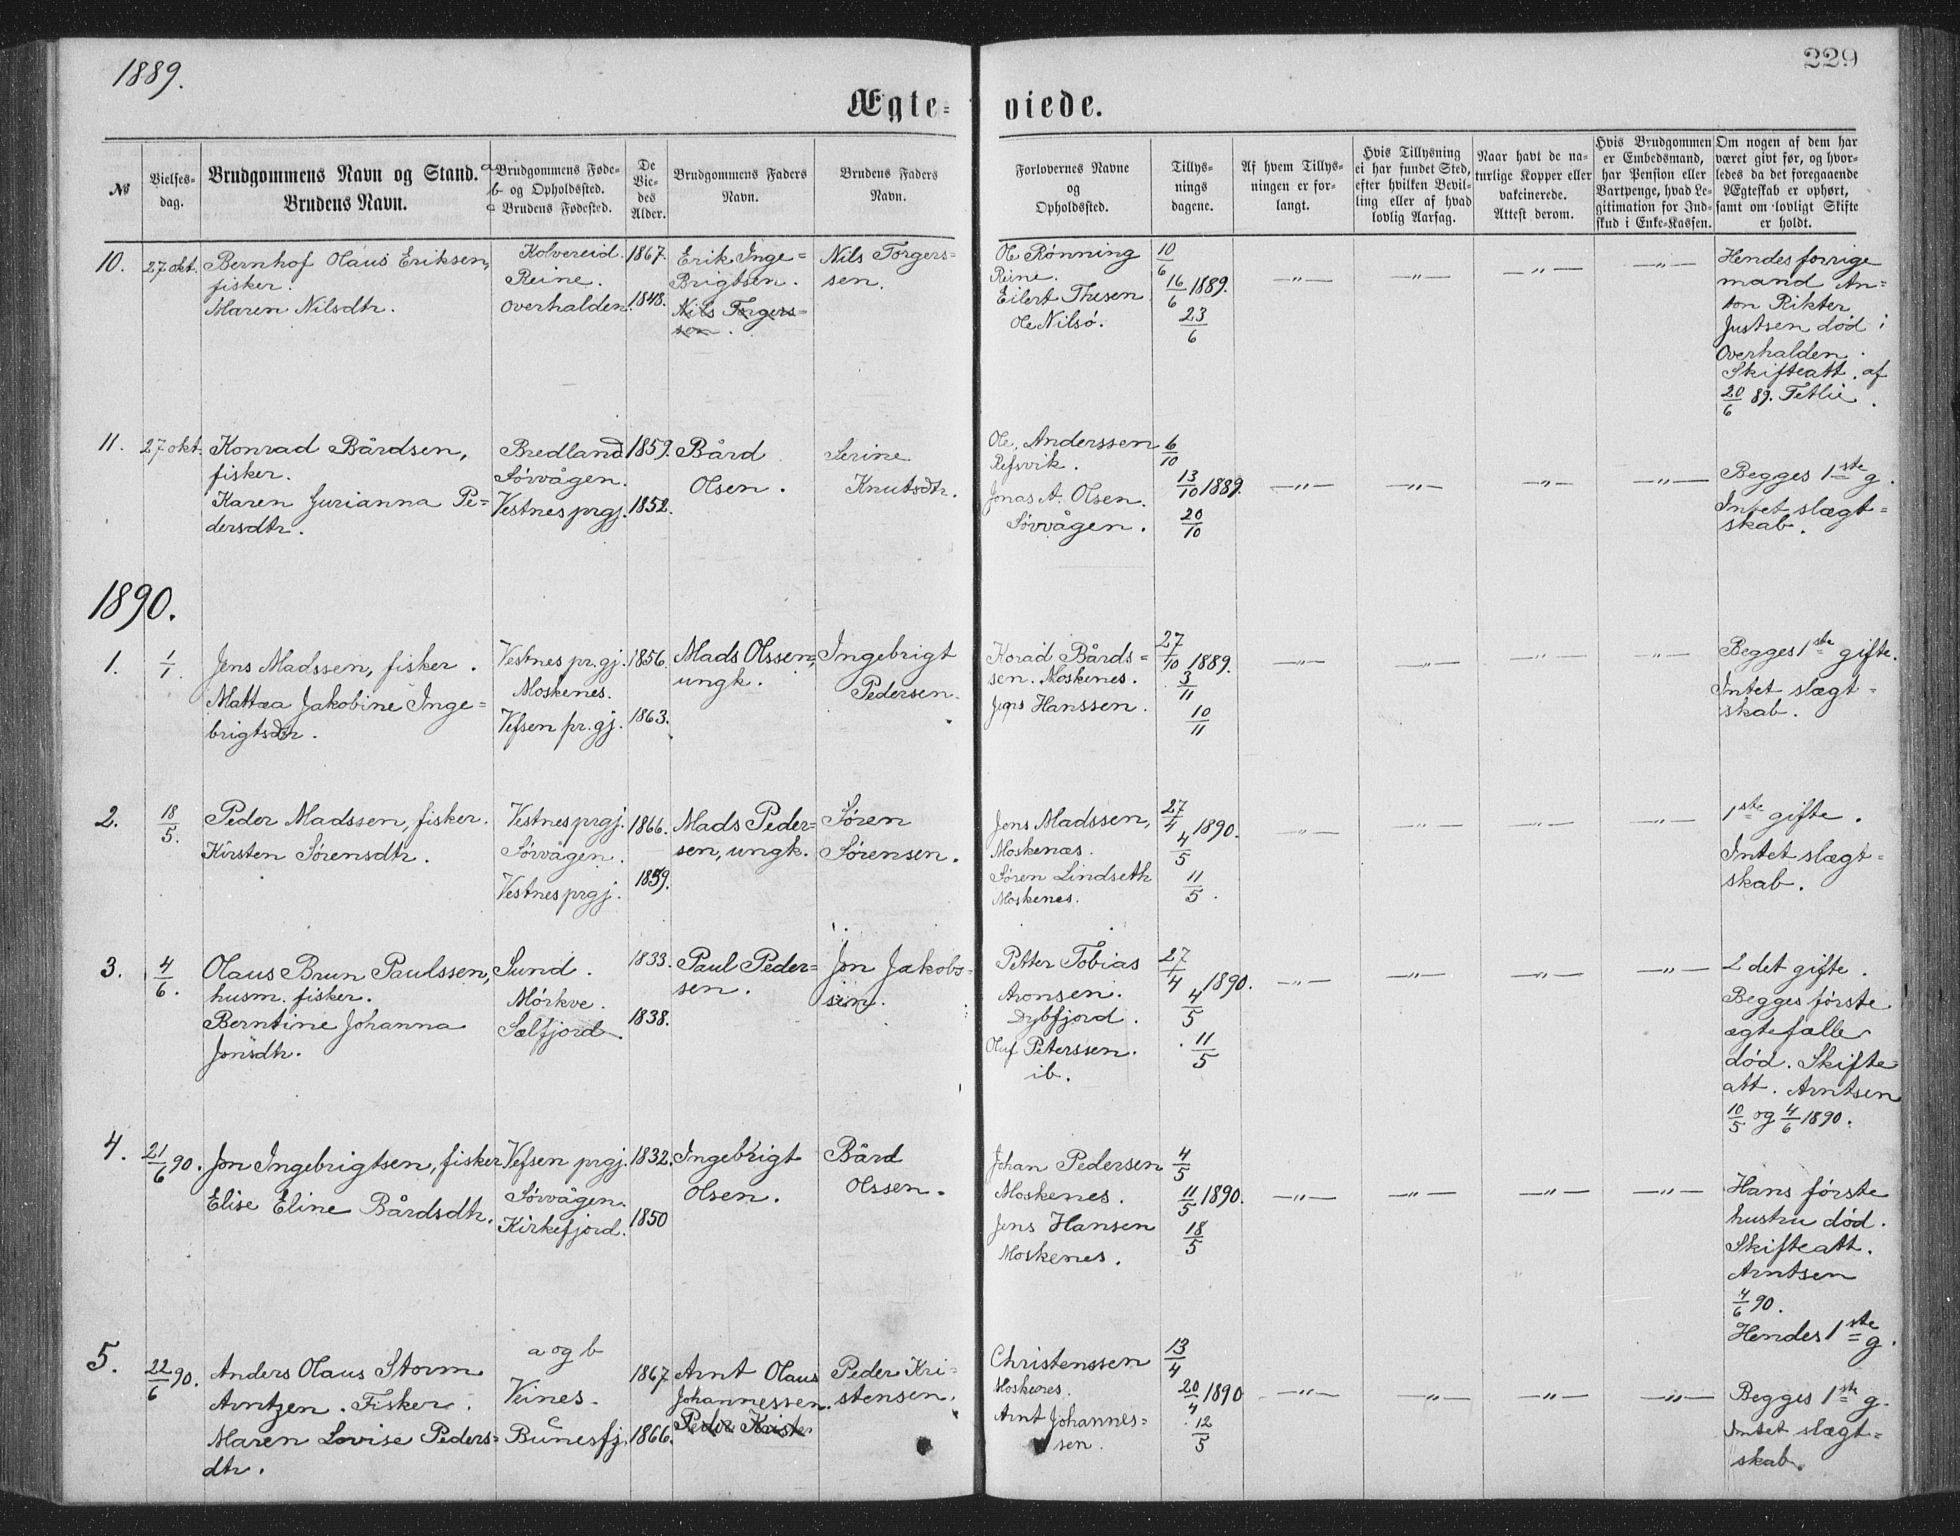 1889.
229
Ægte-
viede.
№
Vielses-
dag.
Brudgommens Navn og Stand.
Brudens Navn.
a
b
c
Brudgommens Føde-
og Opholdssted.
Brudens Fødested.
De
Vie-
des
Alder.
Brudgommens Faders
Navn.
Brudens Faders
Navn.
Forlovernes Navne
og
Opholdssted.
Tillys-
nings
dagene.
Af hvem Tillys-
ningen er for-
langt.
Hvis Tillysning
ei har fundet Sted,
efter hvilken Bevil-
ling eller af hvad
lovlig Aarsag.
Naar havt de na-
turlige Kopper eller
vakcinerede.
Attest derom.
Hvis Brudgommen
er Embedsmand,
har Pension eller
Vartpenge, hvad Le-
gitimation for Ind-
skud i Enke-Kassen.
Om nogen af dem har
været givt før, og hvor-
ledes da det foregaaende
Ægteskab er ophørt,
samt om lovligt Skifte
er holdt.
10.
27 okt.
Bernhof Olaus Eriksen,
fisker.
Maren Nilsdtr.
Kolvereid.
Reine.
Overhalden.
1867.
1848.
Erik Inge-
Brigtsen.
Nils Torgers-
sen.
Nils Torgers-
sen.
Ole Rønning
Reine.
Eilert Thesen
Ole Nilsø.
10/6
16/6 1889.
23/6
—"—
—"—
—"—
—"—
Hendes forrige
mand An-
ton Rikter
Justsen død i
Overhalden.
Skifteatt. af
20/6 89. Tetlie.
11.
27 okt.
Konrad Bårdsen,
fisker.
Karen Jurianna Pe-
dersdtr.
Bredland
Sørvågen.
Vestnes prgj.
1859.
1852.
Bård
Olsen.
Serine
Knutsdtr.
Ole Anderssen
Refsvik.
Jonas A. Olsen.
Sørvågen.
6/10
13/10 1889.
20/10
—"—
—"—
—"—
—"—
Begges 1ste g.
Intet slægt-
skab.
1890.
1.
1/1.
Jens Madssen, fisker.
Mattea Jakobine Inge-
brigtsdtr.
Vestnes pr.gj.
Moskenes.
Vefsen pr.gj.
1856.
1863.
Mads Olssen,
ungk.
Ingebrigt
Pedersen.
Korad Bårds-
sen. Moskenes.
Jens Hanssen.
27/10 1889.
3/11
10/11
—"—
—"—
—"—
—"—
Begges 1ste gifte.
Intet slægt-
skab.
2.
18/5.
Peder Madssen, fisker.
Kirsten Sørensdtr.
Vestnes prgj.
Sørvågen.
Vestnes prgj.
1866.
1859.
Mads Peder-
sen, ungk.
Søren
Sørensen.
Jens Madssen,
Moskenæs.
Søren Lindseth
Moskenes.
27/4 1890.
4/5
11/5.
—"—
—"—
—"—
—"—
1ste gifte.
Intet slægt-
skab.
3.
4/6.
Olaus Brun Paulssen,
husm. fisker.
Berntine Johanna
Jonsdtr.
Sund.
Mørkve.
Sælfjord.
1833.
1838.
Paul Peder-
sen.
Jon Jakobs-
sen.
Petter Tobias
Aronsen.
Dybfjord.
Oluf Peterssen.
ib.
27/4 1890.
4/5
11/5
—"—
—"—
—"—
—"—
2 det gifte.
Begges første
ægtefælle
død. Skifte-
att. Arntsen
10/5 og 4/6 1890.
4.
21/6 90.
Jon Ingebrigtsen, fisker
Elise Eline Bårdsdtr.
Vefsen prgj.
Sørvågen.
Kirkefjord.
1832.
1850
Ingebrigt
Olsen.
Bård
Olssen.
Johan Pedersen
Moskenes.
Jens Hansen
Moskenes.
4/5
11/5 1890.
18/5
—"—
—"—
—"—
—"—
Hans første
hustru død.
Skifteatt.
Arntsen
4/6 90.
Hendes 1ste g.
5.
22/6 90.
Anders Olaus Storm
Arntzen. Fisker.
Maren Lovise Peders-
dtr.
a og b
Veines.
c
Bunesfj.
1867
1866.
Arnt Olaus
Johannessen.
Peder Kriste
Peder Kri-
stensen.
Christenssen
Moskenes.
Arnt Johannes-
sen.
13/4
20/4 1890
12/5
—"—
—"—
—"—
—"—
Begges 1ste g.
Intet slægt-
skab.